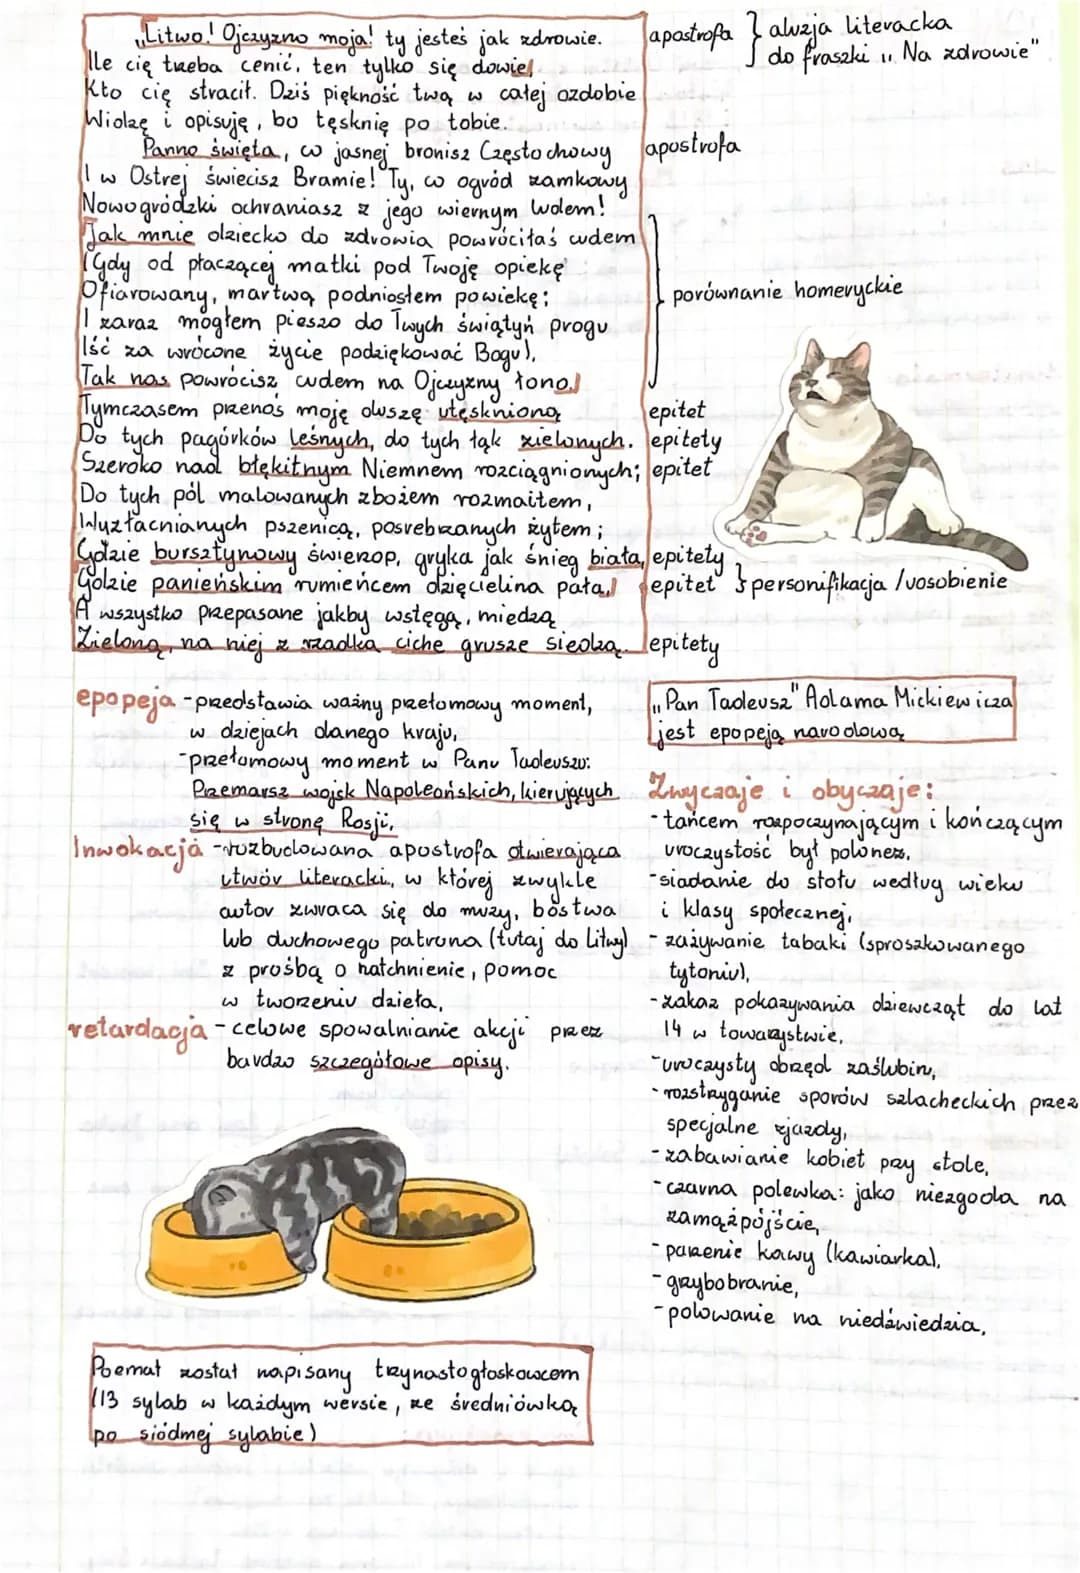 „Litwo! Ojczyzno moja! ty jesteś jak zdrowie.
Ile cię trzeba cenić, ten tylko się dowie,
Kto cię stracił. Dziś piękność twą w całej ozdobie
Widzę i opisuję, bo tęsknię po tobie.
Panno święta, co jasnej bronisz Częstochowy
I w Ostrej świecisz Bramie! Ty, co ogród zamkowy
Nowogródzki ochraniasz z jego wiernym ludem!
Jak mnie dziecko do zdrowia powróciłaś cudem
(Gdy od płaczącej matki pod Twoję opiekę
Ofiarowany, martwą podniosłem powiekę;
I zaraz mogłem pieszo do Twych świątyń progu
Iść za wrócone życie podziękować Bogu),
Tak nas powrócisz cudem na Ojczyzny łono.
Tymczasem przenoś moję duszę utęsknioną
Do tych pagórków leśnych, do tych łąk zielonych.
Szeroko nad błękitnym Niemnem rozciągnionych;
Do tych pól malowanych zbożem rozmaitem,
Wyzłacnianych pszenicą, posrebrzanych żytem;
Gdzie bursztynowy świerzop, gryka jak śnieg biała,
Gdzie panieńskim rumieńcem dzięcielina pała,
A wszystko przepasane jakby wstęgą, miedzą
Zieloną, na niej z rzadka ciche grusze siedzą.
apostrofa } aluzja literacka
do fraszki „Na zdrowie"
apostrofa
porównanie homeryckie
epitet
epitety
epitet
epitety
epitet } personifikacja /uosobienie
epitety
epopeja - przedstawia ważny przełomowy moment,
w dziejach danego kraju,
- przełomowy moment w Panu Tadeuszu:
Przemarsz wojsk Napoleońskich, kierujących
się w stronę Rosji.
Inwokacja - rozbudowana apostrofa otwierająca
utwór literacki, w której zwykle
autor zwraca się do muzy, bóstwa
lub duchowego patrona (tutaj do Litwy)
z prośbą o natchnienie, pomoc
w tworzeniu dzieła,
retardacja - celowe spowalnianie akcji przez
bardzo szczegółowe opisy.
Poemat został napisany trzynastogłoskowcem
(13 sylab w każdym wersie, ze średniówką
po siódmej sylabie)
„Pan Tadeusz" Adama Mickiewicza
jest epopeją narodową
Zwyczaje i obyczaje:
- tańcem rozpoczynającym i kończącym
uroczystość był polonez,
- siadanie do stołu według wieku
i klasy społecznej,
- zażywanie tabaki (sproszkowanego
tytoniu),
- zakaz pokazywania dziewcząt do lat
14 w towarzystwie,
- uroczysty obrzęd zaślubin,
- rozstrzyganie sporów szlacheckich przez
specjalne zjazdy,
- zabawianie kobiet przy stole,
- czarna polewka: jako niezgoda na
zamążpójście,
- parzenie kawy (kawiarka),
- grzybobranie,
- polowanie na niedźwiedzia.